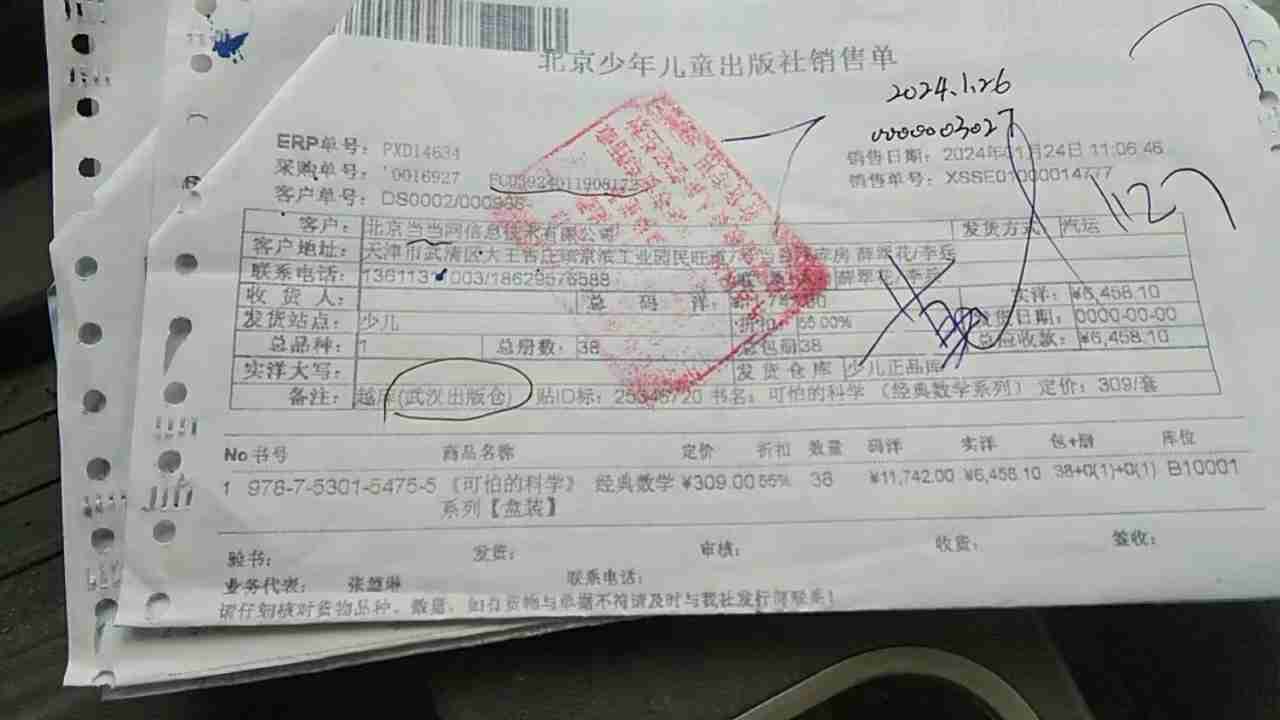 北京少年儿童出版社销售单
2024.1.26
0000003027
ERP单号：PXD14634
销售日期：2024年01月24日 11:06:46
采购单号：0016927
销售单号：XSSE01000014777
客户单号：DS0002/000
1127
客户：北京当当网信息技术有限公司 发货方式：汽运
客户地址：天津市武清区大王古庄镇京滨工业园民旺道
联系电话：136113 003/18629576588
收货人： 总码洋： 实洋：¥6,458.10
发货站点：少儿 折扣：55.00% 发货日期：0000-00-00
总品种：1 总册数：38 总包册38 总应收款：¥6,458.10
实洋大写： 发货仓库 少儿正品库
备注：(武汉出版仓) 贴ID标：25346720 书名：可怕的科学（经典数学系列）定价：309/套
No 书号 商品名称 定价 折扣 数量 码洋 实洋 包+册 库位
1 978-7-5301-5475-5 《可怕的科学》 经典数学 ¥309.00 55% 38 ¥11,742.00 ¥6,458.10 38+0(1)+0(1) B10001
系列【盒装】
验书： 发货： 审核： 收货： 签收：
业务代表： 联系电话：
请仔细核对货物品种、数量，如有货物与单据不符请及时与我社发行部联系！